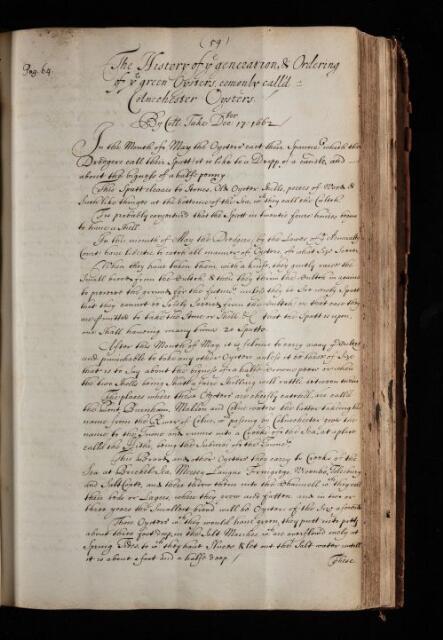 (59)
Pag: 64.
The History of yᵉ generation, & Ordering
of yᵉ green Oysters, comonly call'd
Colnechester Oysters.
By Coll: Tuke Decᵇᵉʳ 17: 1662
In the Month of May the Oysters cast their Spawne, which the
Dredgers call their Spatt it is like to a Dropp of a candle, and
about the bigness of a halfe-penny
This Spatt cleaves to Stones, Old Oyster Shells, peeces of Wood, &
Such like things at the bottome of the Sea, wᶜʰ they call the Cultch
Tis probably conjectured that the Spatt in twenty foure houres begins
to have a Shell
In this month of May the Dredgers (by the Law of yᵉ Admiralty
Court) have Libertie to catch all manner of Oysters, of what Size Soever.
When they have taken them, with a knife, they gently raise the
Small brood from the Cultch, & then they throw the Cultch in againe
to preserve the ground for the future, unless they be So newly Spatt
that they cannot be Safely Severed from the Cultch, in that case they
are permitted to take the Stone or Shell &c that the Spatt is upon,
one Shell haveing many times 20 Spatts
After this Month of May it is felonie to carry away yᵉ Cultch
and punishable to take any other Oysters unless it be those of Size
that is to Say about the bigness of a halfe Crowne peece or when
the two Shells being Shutt a faire Shilling will rattle between them
The places where these Oysters are cheifly catched, are call'd
the Pont Burnham, Malden and Colne waters the latter takeing his
name from the River of Colne, wᶜʰ passing by Colnechester gives the
name to the Towne and runns into a Creeke of the Sea, at a place
called the Hythe, being the Suburbs of the Towne
This Brood and other Oysters they carry to Creeks of the
Sea at Brickel-Sea, Mersey, Langno, Fringrigo, Wivenho, Tolesbury
and Salt Coate, and there throw them into the Channell wᶜʰ they call
their beds or Layers, where they grow and fatten and in two or
three yeares the Smallest brood will be Oysters of the Size aforesaid
Those Oysters wᶜʰ they would have green, they putt into pitts
about three foot deep, in the Salt Marshes wᶜʰ are overflowed only at
Spring Tides, to wᶜʰ they have Sluces & let out the Salt water untill
it is about a foot and a halfe deep /
These